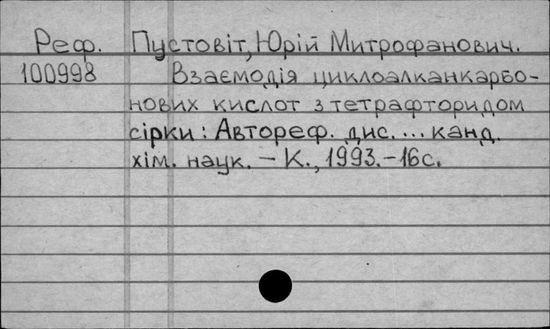 Реф. Пустовіт, Юрій Митрофанович.
100998 Взаємодія циклоалканкарбо-
нових кислот з тетрафторидом
сірки: Автореф. дис. ... канд.
хім. наук. – К., 1993. – 16 с.